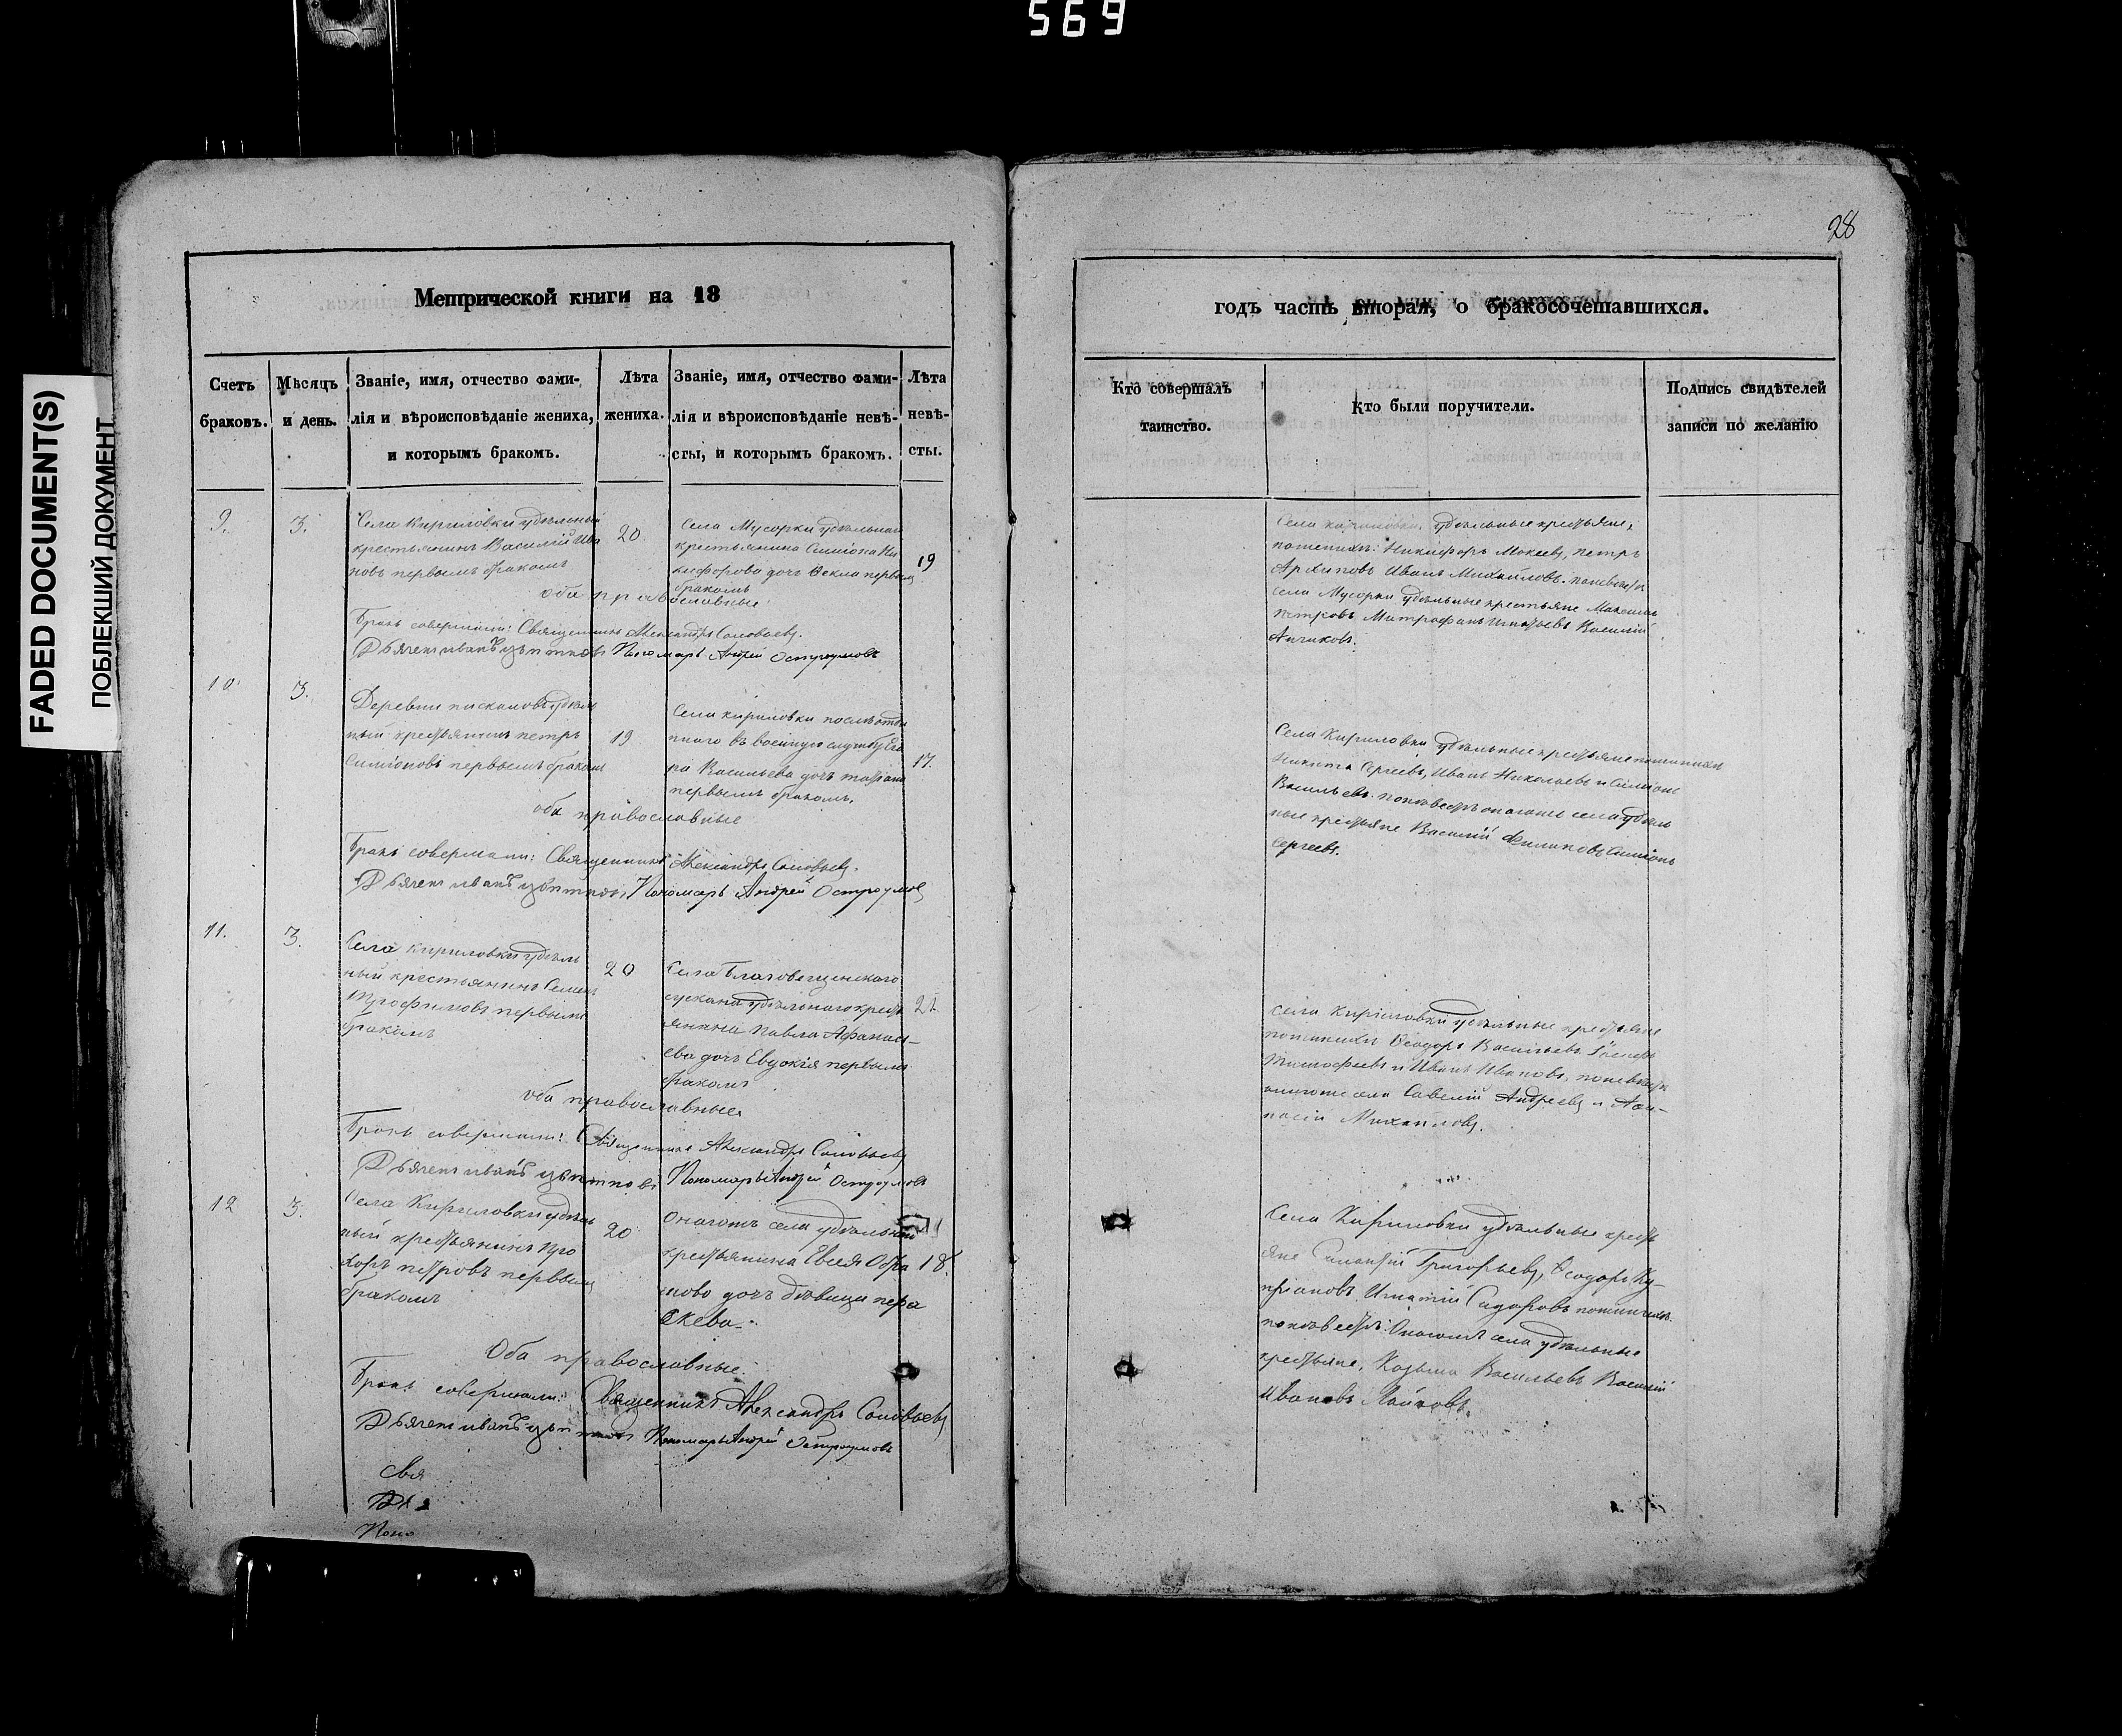 569
28
FADED DOCUMENT(S)
ПОБЛЕКШИЙ ДОКУМЕНТ
Метрической книги на 18
Счетъ браковъ.
Мѣсяцъ и день.
Званіе, имя, отчество фами-
лія и вѣроисповѣданіе жениха,
и которымъ бракомъ.
Лѣта
жениха.
Званіе, имя, отчество фами-
лія и вѣроисповѣданіе невѣ-
сты, и которымъ бракомъ.
Лѣта
невѣ-
сты.
9.
3.
Села Кириловки удѣльный
крестьянинъ Василій Ива
новъ первымъ бракомъ
20
Села Мусорки удѣльнаго
крестьянина Симіона Ни
кифорова дочь Ѳекла первымъ
бракомъ
19
оба православные
Бракъ совершали: Священникъ Александръ Соловьевъ.
Дьячекъ иванъ цвѣтковъ Пономарь Андрей Остроумовъ
10.
3.
Деревни удѣль
ный крестьянинъ петръ
Симіоновъ первымъ бракомъ
19
Села кириловки послѣ отда
ннаго въ военную службу
Васильева дочь
первымъ бракомъ.
17.
оба православные
Бракъ совершали: Священникъ Александръ Соловьевъ.
Дьячекъ иванъ цвѣтковъ, Пономарь Андрей Остроумовъ
11.
3.
Села кириловки удѣль
ный крестьянинъ Семенъ
Трофимовъ первымъ
бракомъ
20
Села Благовещенскаго
сускана удѣльнаго крест
янина Павла Афанась-
ева дочь Евдокія первымъ
бракомъ
21.
оба православные
Бракъ совершали: Священникъ Александръ Соловьевъ
Дьячекъ иванъ цвѣтковъ Пономарь Андрей Остроумовъ
12
3.
Села Кириловки удѣль
ный крестьянинъ Про
хоръ петровъ первымъ
бракомъ
20
Онагожъ села удѣльнаго
крестьянина Евсея
дочь дѣвица пара
скева.
18.
Оба православные.
Бракъ совершали: Священникъ Александръ Соловьевъ
Дьячекъ иванъ цвѣтковъ Пономарь Андрей Остроумовъ
Свя
Дья
Поно
годъ часть вторая, о бракосочетавшихся.
Кто совершалъ
таинство.
Кто были поручители.
Подпись свидѣтелей
записи по желанію
Села кириловки, удѣльные крестьяне,
по женихѣ: Никифоръ Мокеевъ, петръ
Архиповъ Иванъ Михайловъ. по невѣстѣ
села Мусорки удѣльные крестьяне Максимъ
Петровъ Митрофанъ Игнатьевъ Василій
Села Кириловки удѣльные крестьяне по женихѣ
Никита Сергеевъ, Иванъ Николаевъ и Симіонъ
Васильевъ. по невѣстѣ онагожъ села удѣль
ные крестьяне Василій Филиповъ Симіонъ
Сергеевъ.
Села Кириловки удѣльные крестьяне
по женихѣ Ѳеодоръ Васильевъ
Тимофеевъ и Иванъ Ивановъ, по невѣстѣ
онагоже села Савелій Андреевъ и
Михаиловъ.
Села Кириловки удѣльные крест
яне Григорьевъ, Ѳеодоръ Ку-
пріановъ, Игнатій Сидоровъ по женихѣ.
по невѣстѣ: Онагожъ села удѣльные
крестьяне, Козьма Васильевъ Василій
Ивановъ